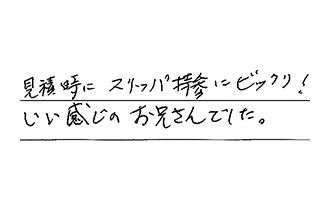 見積時に スリッパ持参にビックリ！
いい感じの お兄さんでした。